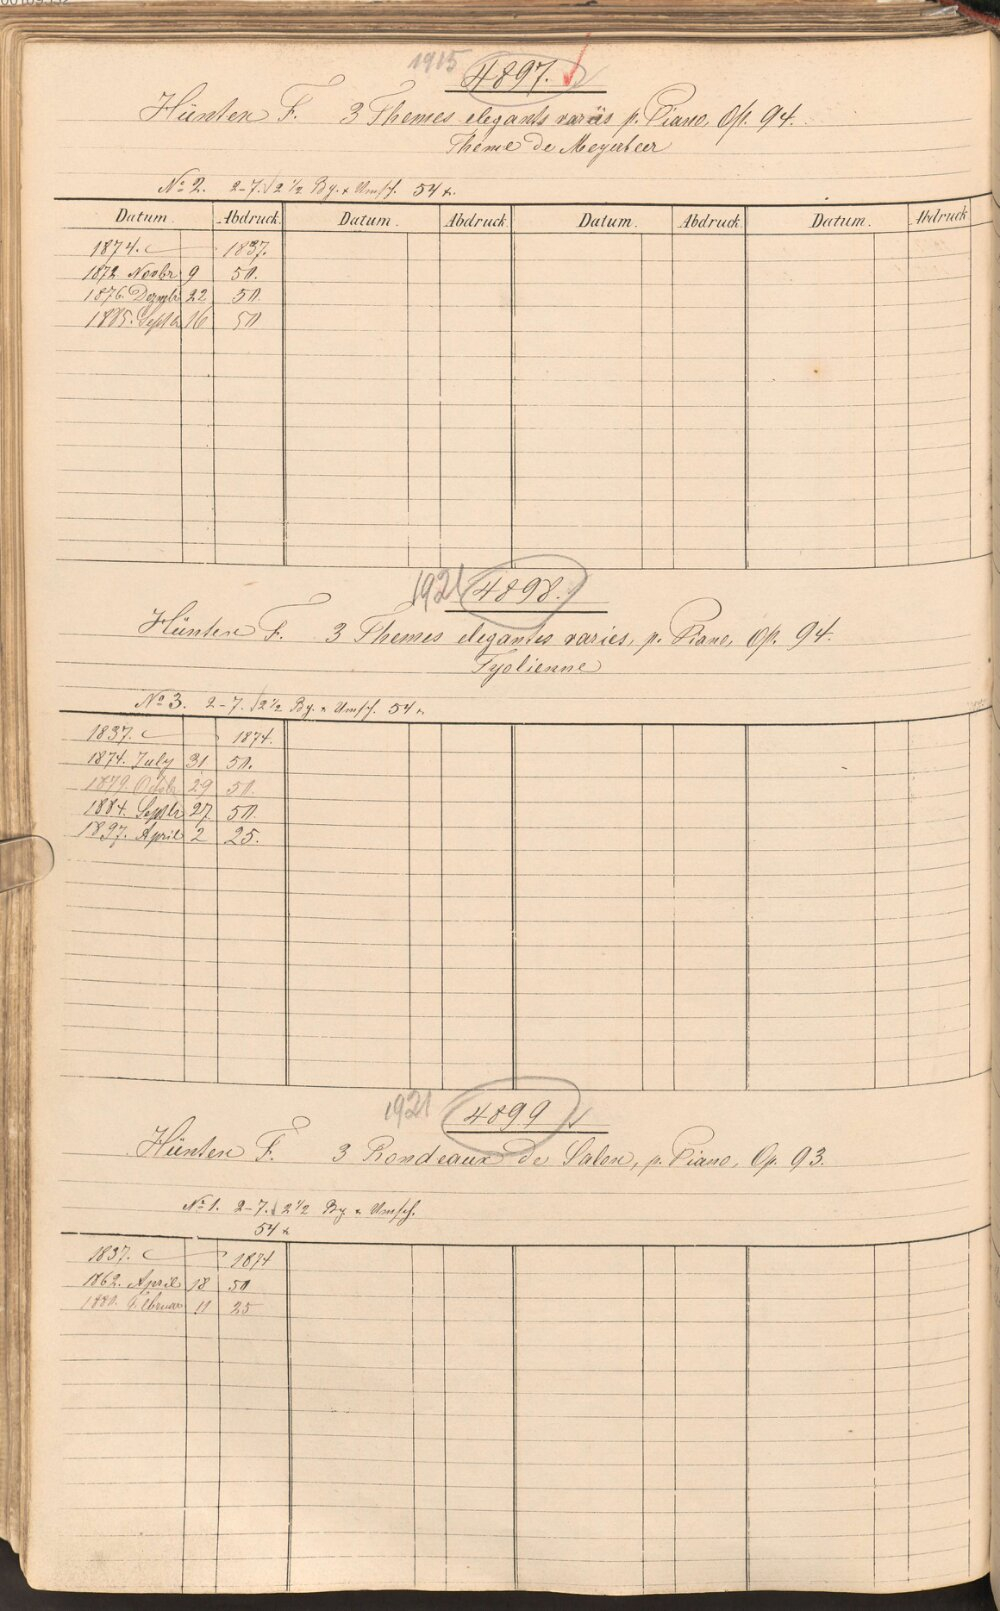 1915 4897.
Hünten F. 3 Themes elegants variés p. Piano, Op. 94.
Theme de Meyerbeer
No 2. 2-7. 2 1/2 Bg. Umsch. 54 x.
Datum. Abdruck. Datum. Abdruck. Datum. Abdruck. Datum. Abdruck.
1874. 1837.
1872 Novbr 9 50.
1876. Dezmbr 22 50.
1885. Septbr 16 50
1921 4898.
Hünten F. 3 Themes elegantes varies, p. Piano, Op. 94.
Tyolienne
No 3. 2-7. 2 1/2 Bg. Umsch. 54 x.
1837. 1874.
1874. July 31 50.
1879 Octbr 29 50.
1884. Septbr 27 50.
1897. April 2 25.
1921 4899
Hünten F. 3 Rondeaux de Salon, p. Piano, Op. 93.
No 1. 2-7. 2 1/2 Bg. Umsch.
54 x
1837. 1874
1862. April 18 50
1880. Februar 11 25